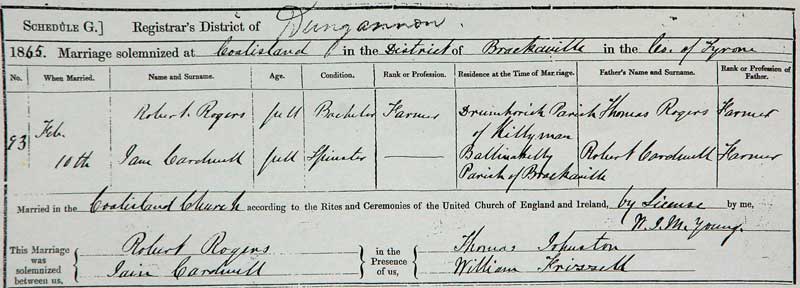 SCHEDULE G.] Registrar's District of Dungannon.
1865. Marriage solemnized at Coalisland in the District of Brackaville in the Co. of Tyrone
No. When Married. Name and Surname. Age. Condition. Rank or Profession. Residence at the Time of Marriage. Father's Name and Surname. Rank or Profession of Father.
93 Feb. 10th
Robert Rogers full Bachelor Farmer Drumkorick Parish of Killyman Thomas Rogers Farmer
Jane Cardwell full Spinster — Ballinakelly Parish of Brackaville Robert Cardwell Farmer
Married in the Coalisland Church according to the Rites and Ceremonies of the United Church of England and Ireland, by License by me,
W. J. McYoung.
This Marriage was solemnized between us, { Robert Rogers
Jain Cardwell } in the Presence of us, { Thomas Johnston
William }